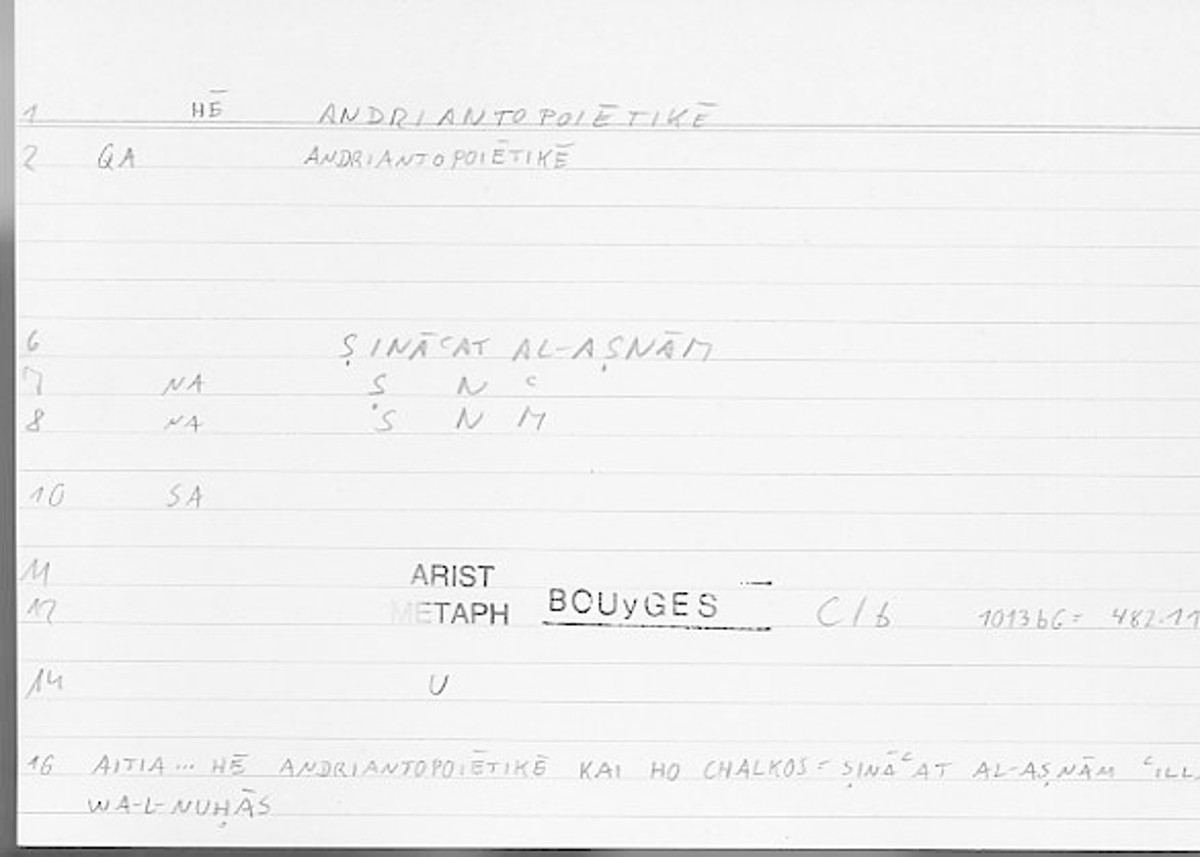 1 HĒ ANDRIANTOPOIĒTIKĒ
2 QA ANDRIANTOPOIĒTIKĒ
6 ṢINĀʿAT AL-AṢNĀM
7 NA Ṣ N ʿ
8 NA Ṣ N M
10 SA
11 ARIST
12 METAPH BOUyGES C/b 1013b6= 482.11
14 U
16 AITIA... HĒ ANDRIANTOPOIĒTIKĒ KAI HO CHALKOS = ṢINĀʿAT AL-AṢNĀM ʿILL
WA-L-NUḤĀS